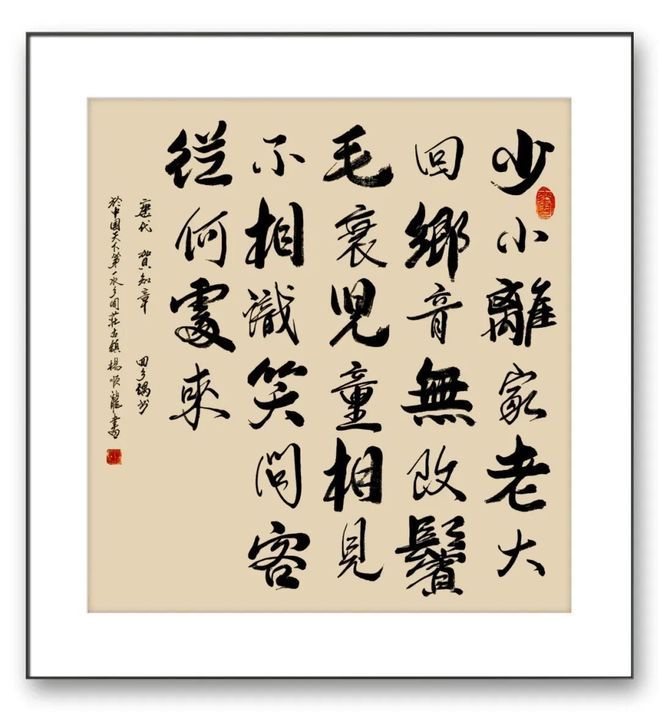 少小離家老大
回鄉音無改鬢
毛衰児童相見
不相識笑問客
從何處來
唐代 賀知章 回乡偶书
於中國天下第一水乡周莊古鎮楊順龍書